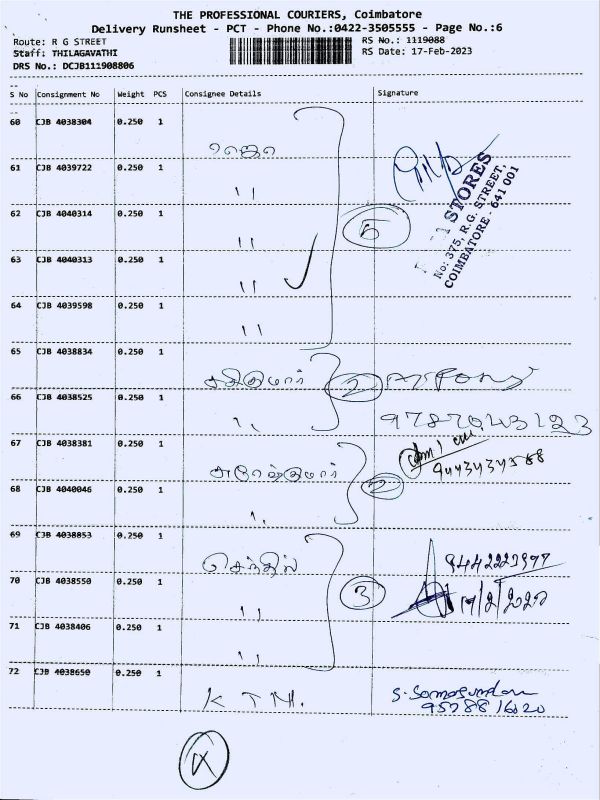 THE PROFESSIONAL COURIERS, Coimbatore
Delivery Runsheet - PCT - Phone No.:0422-3505555 - Page No.:6
Route: R G STREET
RS No.: 1119088
Staff: THILAGAVATHI
RS Date: 17-Feb-2023
DRS No.: DCJB111908806
S No Consignment No Weight PCS Consignee Details Signature
60 CJB 4038304 0.250 1
61 CJB 4039722 0.250 1 "
62 CJB 4040314 0.250 1 "
5
63 CJB 4040313 0.250 1 "
64 CJB 4039598 0.250 1 "
STORES
No: 375, R.G. STREET,
COIMBATORE - 641 001
65 CJB 4038834 0.250 1 சதிகுமார் 2
66 CJB 4038525 0.250 1 "
67 CJB 4038381 0.250 1 அசோக்குமார் 2
68 CJB 4040046 0.250 1 "
69 CJB 4038853 0.250 1 செந்தில்
70 CJB 4038550 0.250 1 " 3
71 CJB 4038406 0.250 1 "
72 CJB 4038650 0.250 1 K T M. S. Somasundaram
9578816020